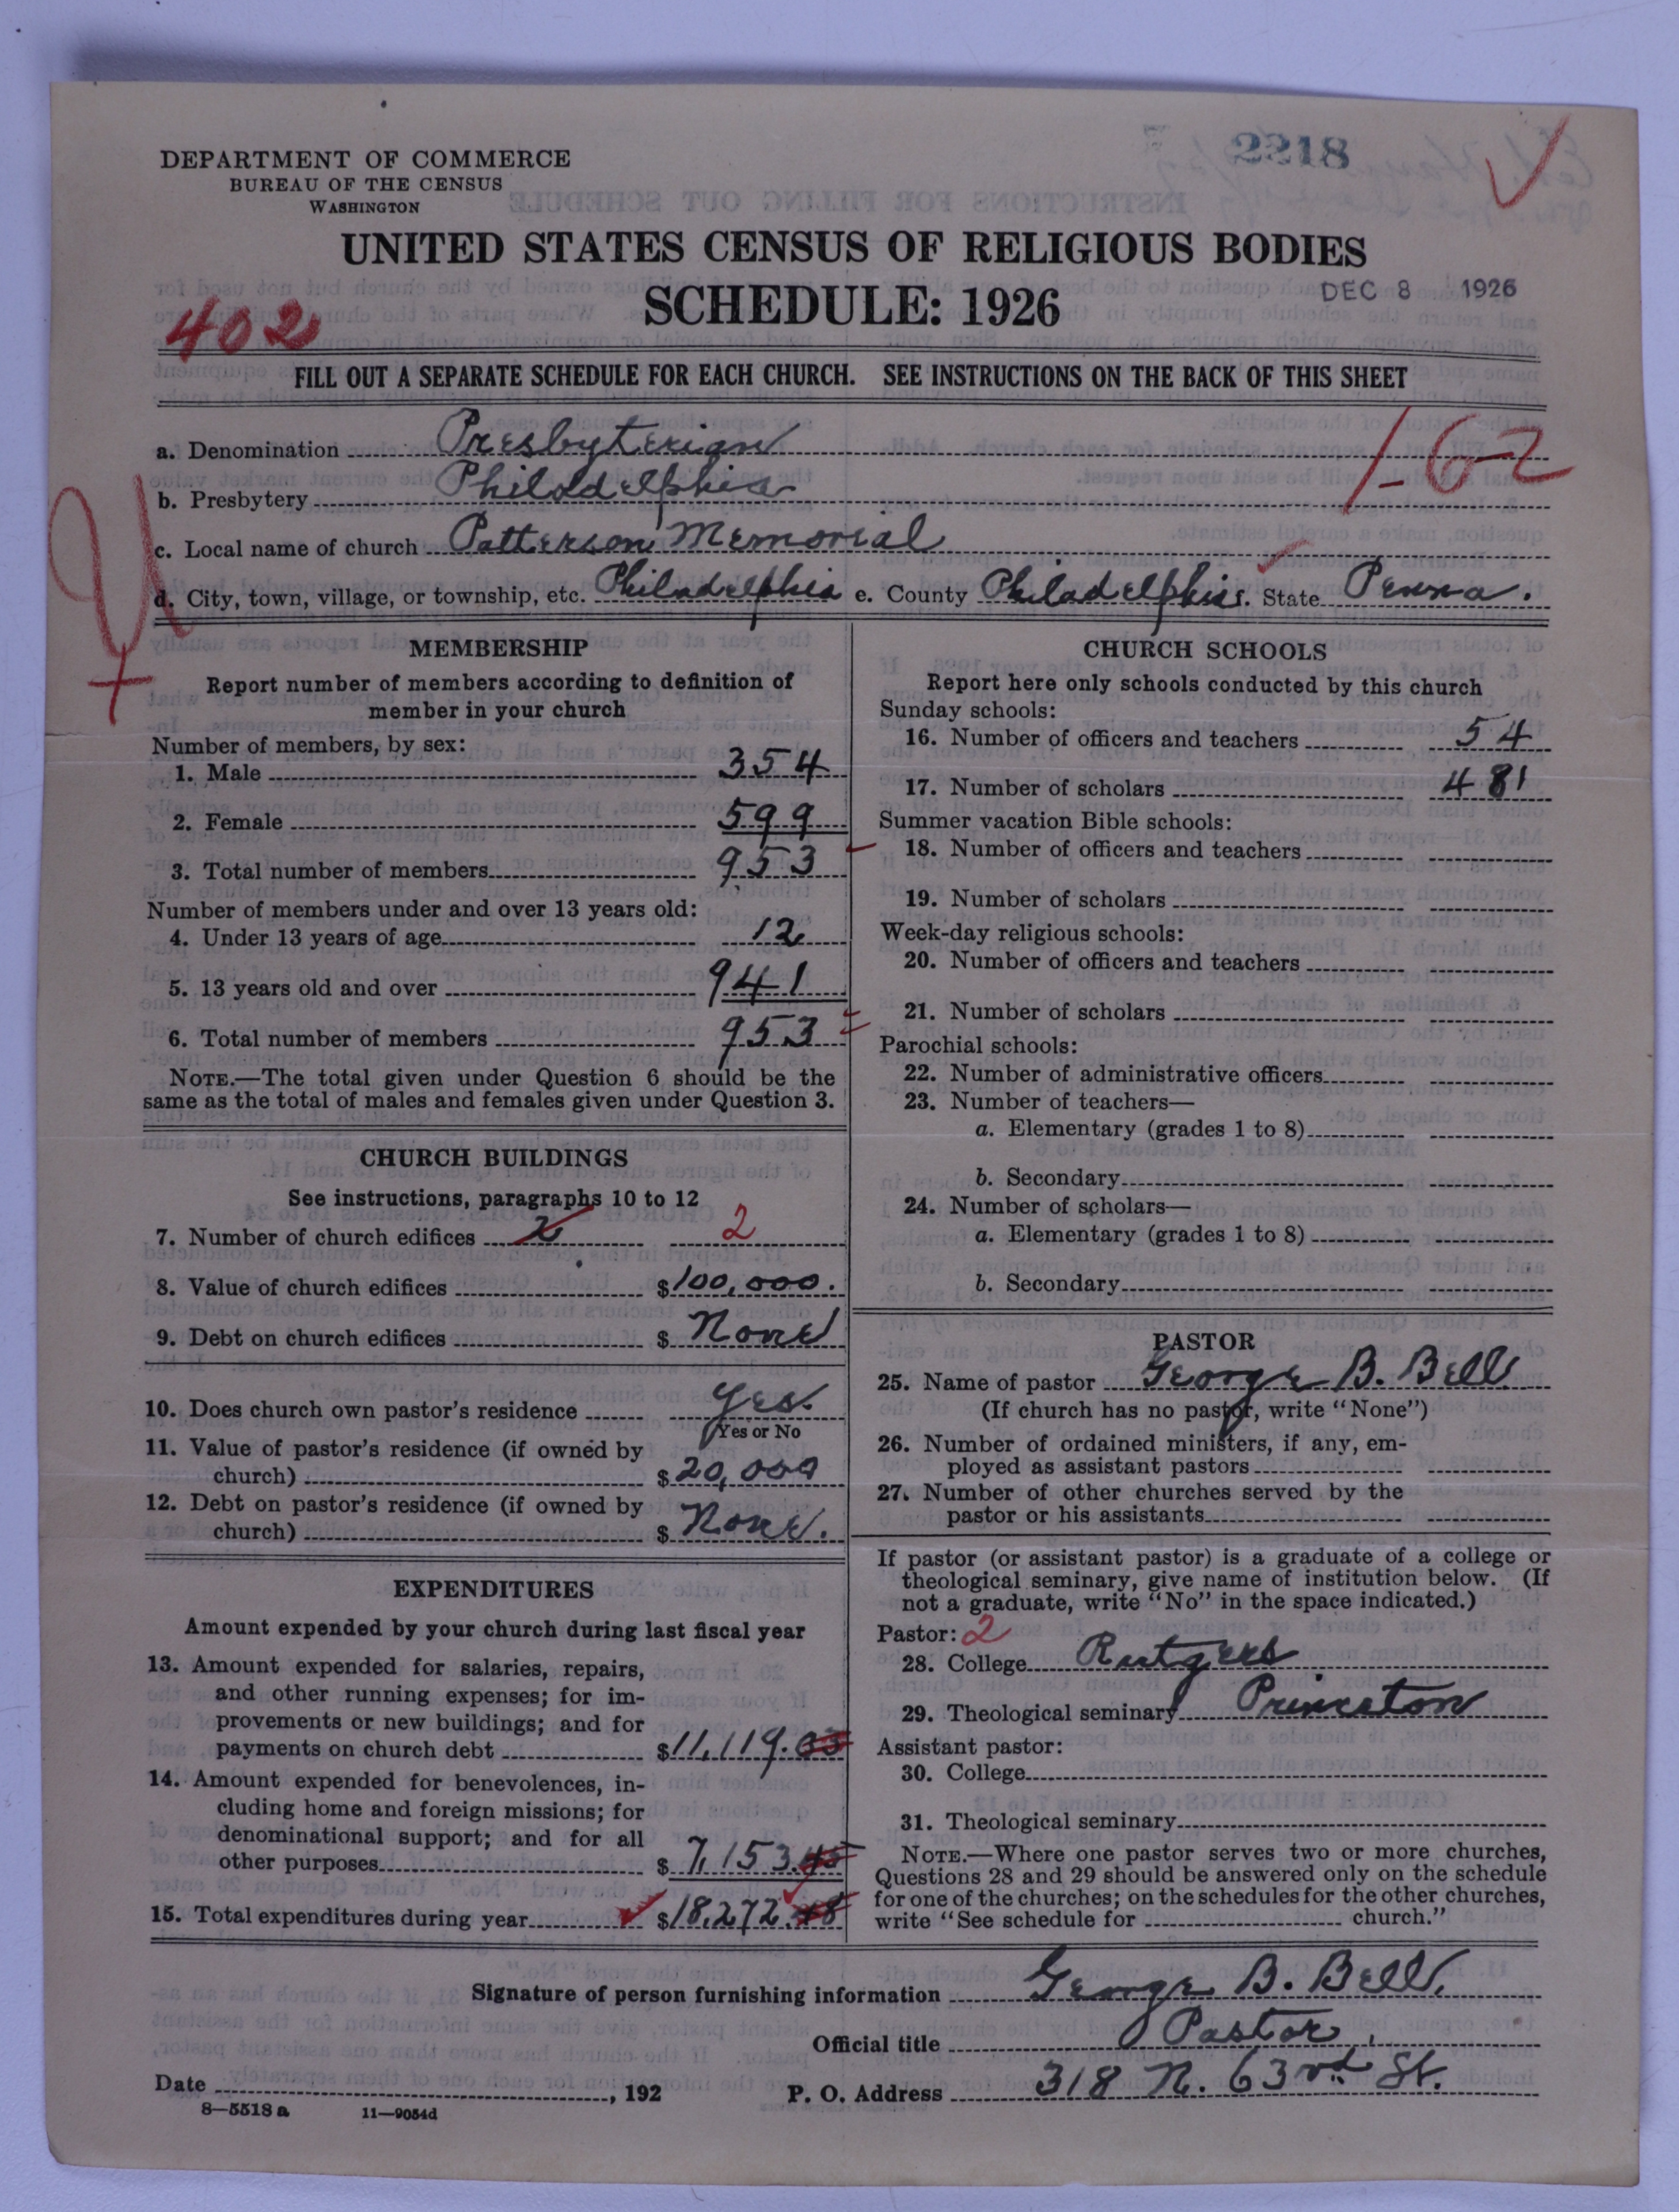 2218
DEPARTMENT OF COMMERCE
BUREAU OF THE CENSUS
WASHINGTON
UNITED STATES CENSUS OF RELIGIOUS BODIES
SCHEDULE: 1926
DEC 8 1926
402
FILL OUT A SEPARATE SCHEDULE FOR EACH CHURCH. SEE INSTRUCTIONS ON THE BACK OF THIS SHEET
a. Denomination Presbyterian
1-62
b. Presbytery Philadelphia
c. Local name of church Patterson Memorial
d. City, town, village, or township, etc. Philadelphia e. County Philadelphia f. State Penna.
MEMBERSHIP
Report number of members according to definition of
member in your church
Number of members, by sex:
1. Male 354
2. Female 599
3. Total number of members 953
Number of members under and over 13 years old:
4. Under 13 years of age 12
5. 13 years old and over 941
6. Total number of members 953
NOTE.—The total given under Question 6 should be the
same as the total of males and females given under Question 3.
CHURCH BUILDINGS
See instructions, paragraphs 10 to 12
7. Number of church edifices 2 2
8. Value of church edifices $100,000.
9. Debt on church edifices $ None
10. Does church own pastor's residence Yes.
Yes or No
11. Value of pastor's residence (if owned by
church) $20,000
12. Debt on pastor's residence (if owned by
church) $ None.
EXPENDITURES
Amount expended by your church during last fiscal year
13. Amount expended for salaries, repairs,
and other running expenses; for im-
provements or new buildings; and for
payments on church debt $11,119.03
14. Amount expended for benevolences, in-
cluding home and foreign missions; for
denominational support; and for all
other purposes $ 7,153.45
15. Total expenditures during year $18,272.48
CHURCH SCHOOLS
Report here only schools conducted by this church
Sunday schools:
16. Number of officers and teachers 54
17. Number of scholars 481
Summer vacation Bible schools:
18. Number of officers and teachers
19. Number of scholars
Week-day religious schools:
20. Number of officers and teachers
21. Number of scholars
Parochial schools:
22. Number of administrative officers
23. Number of teachers—
a. Elementary (grades 1 to 8)
b. Secondary
24. Number of scholars—
a. Elementary (grades 1 to 8)
b. Secondary
PASTOR
25. Name of pastor George B. Bell
(If church has no pastor, write "None")
26. Number of ordained ministers, if any, em-
ployed as assistant pastors
27. Number of other churches served by the
pastor or his assistants
If pastor (or assistant pastor) is a graduate of a college or
theological seminary, give name of institution below. (If
not a graduate, write "No" in the space indicated.)
Pastor: 2
28. College Rutgers
29. Theological seminary Princeton
Assistant pastor:
30. College
31. Theological seminary
NOTE.—Where one pastor serves two or more churches,
Questions 28 and 29 should be answered only on the schedule
for one of the churches; on the schedules for the other churches,
write "See schedule for church."
Signature of person furnishing information George B. Bell.
Official title Pastor
Date , 192 P. O. Address 318 N. 63rd St.
8—5518 a 11—9054d